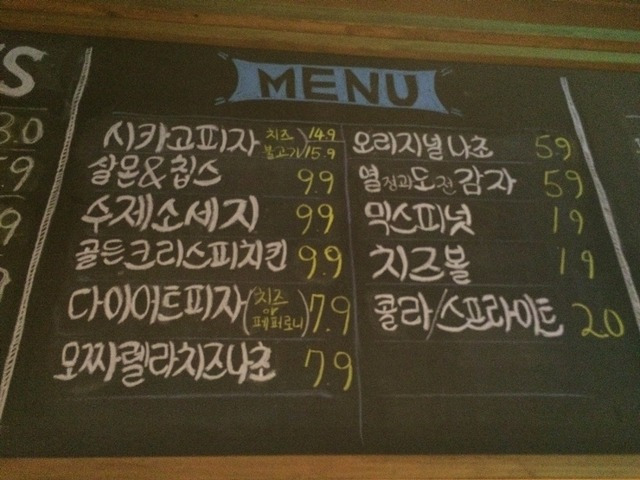 MENU
시카고피자 치즈 14.9
불고기 15.9
살몬&칩스 9.9
수제소세지 9.9
골든크리스피치킨 9.9
다이어트피자 (치즈 or 페퍼로니) 7.9
모짜렐라치즈나쵸 7.9
오리지널 나쵸 5.9
열정과도전감자 5.9
믹스피넛 1.9
치즈볼 1.9
콜라/스프라이트 2.0
S
3.0
.9
9